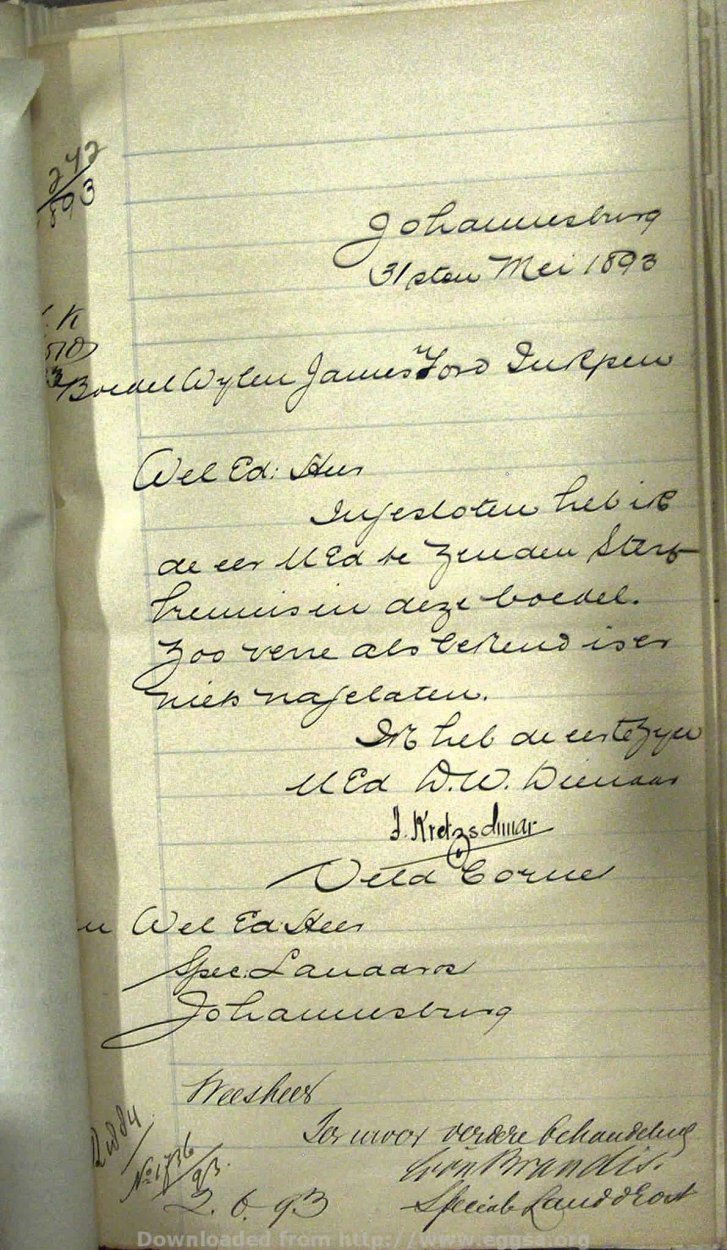 242
1893
Johannesburg
31sten Mei 1893
Boedel Wylen James Ford Inkpen
Wel Ed: Heer
Ingesloten heb ik
de eer UEd te zenden Sterf
kennis in deze boedel.
Zoo verre als bekend is er
niets nagelaten.
Ik heb de eer te zyn
UEd D.W. Dienaar
J. Kretzschmar
Veld Cornet
Wel Ed Heer
Spec. Landdrost
Johannesburg
Weesheer
Ter uwer verdere behandeling
v Brandis.
Speciale Landdrost
No 1736/93.
2.6.93
Downloaded from http://www.eggsa.org